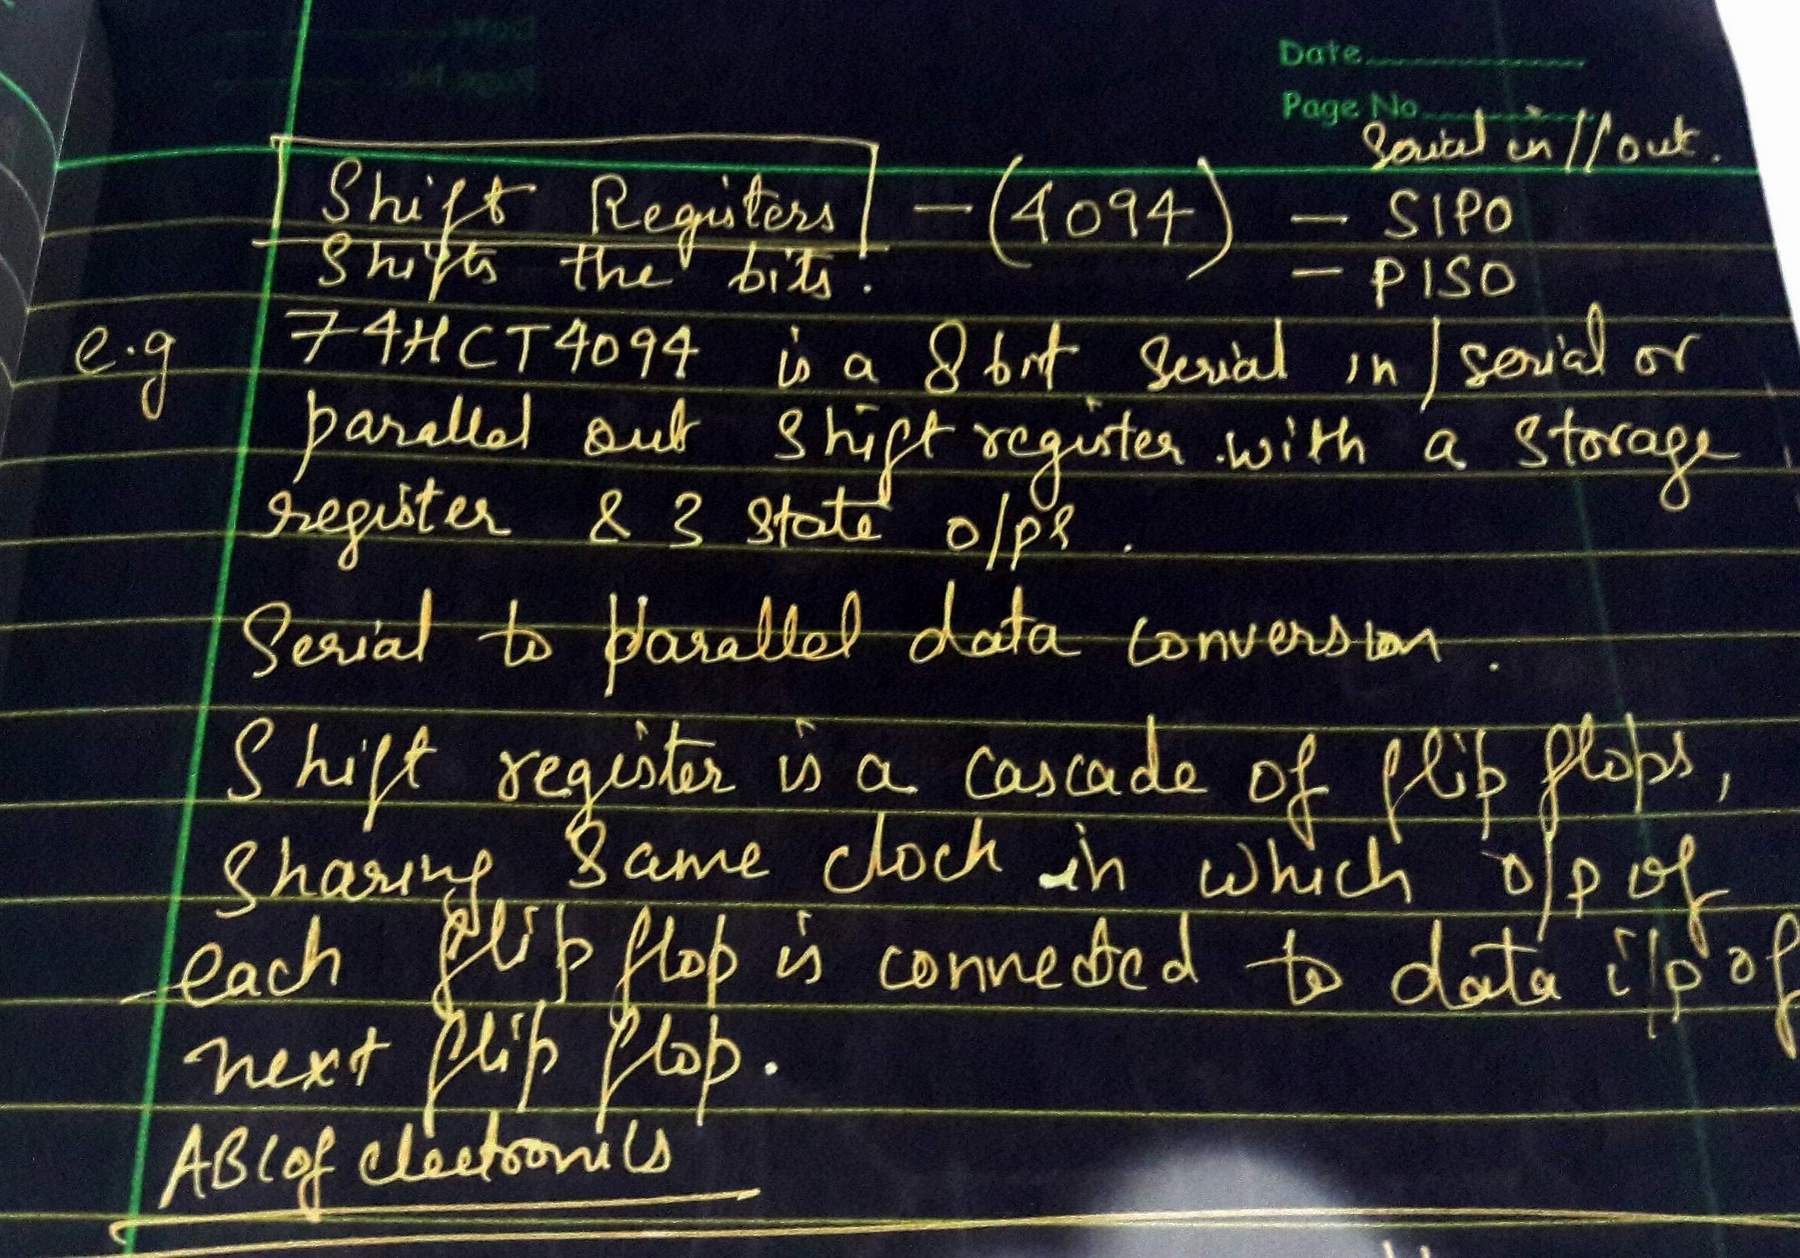 Date
Page No
Serial in // out.
Shift Registers - (4094) - SIPO
Shifts the bits. - PISO
e.g 74HCT4094 is a 8 bit Serial in / serial or
parallel out shift register with a storage
register & 3 state o/ps.
Serial to parallel data conversion.
Shift register is a cascade of flip flops,
sharing same clock in which o/p of
each flip flop is connected to data i/p of
next flip flop.
ABC of electronics